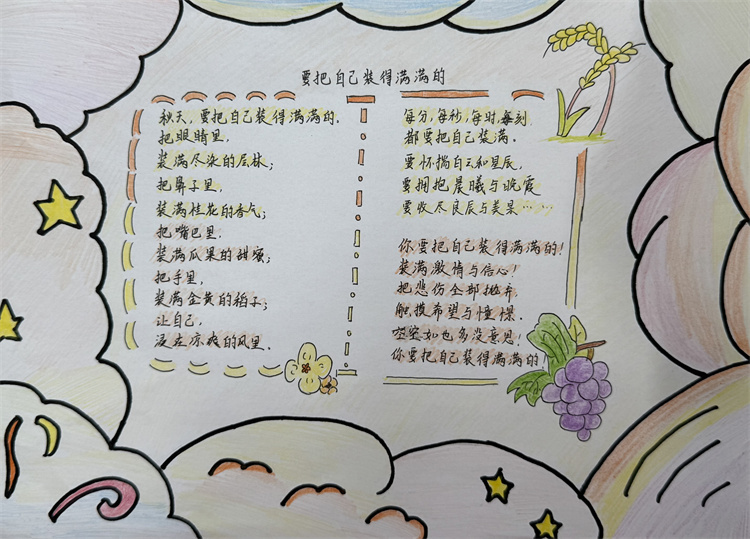 要把自己装得满满的
秋天,要把自己装得满满的.
把眼睛里,
装满尽染的层林;
把鼻子里,
装满桂花的香气;
把嘴巴里.
装满瓜果的甜蜜;
把手里,
装满金黄的稻子;
让自己,
浸在凉爽的风里.
每分,每秒,每时,每刻,
都要把自己装满.
要怀揣白云和星辰,
要拥抱晨曦与晚霞
要收尽良辰与美景……
你要把自己装得满满的!
装满激情与信心!
把悲伤全部抛弃,
触摸希望与憧憬.
空空如也多没意思!
你要把自己装得满满的!